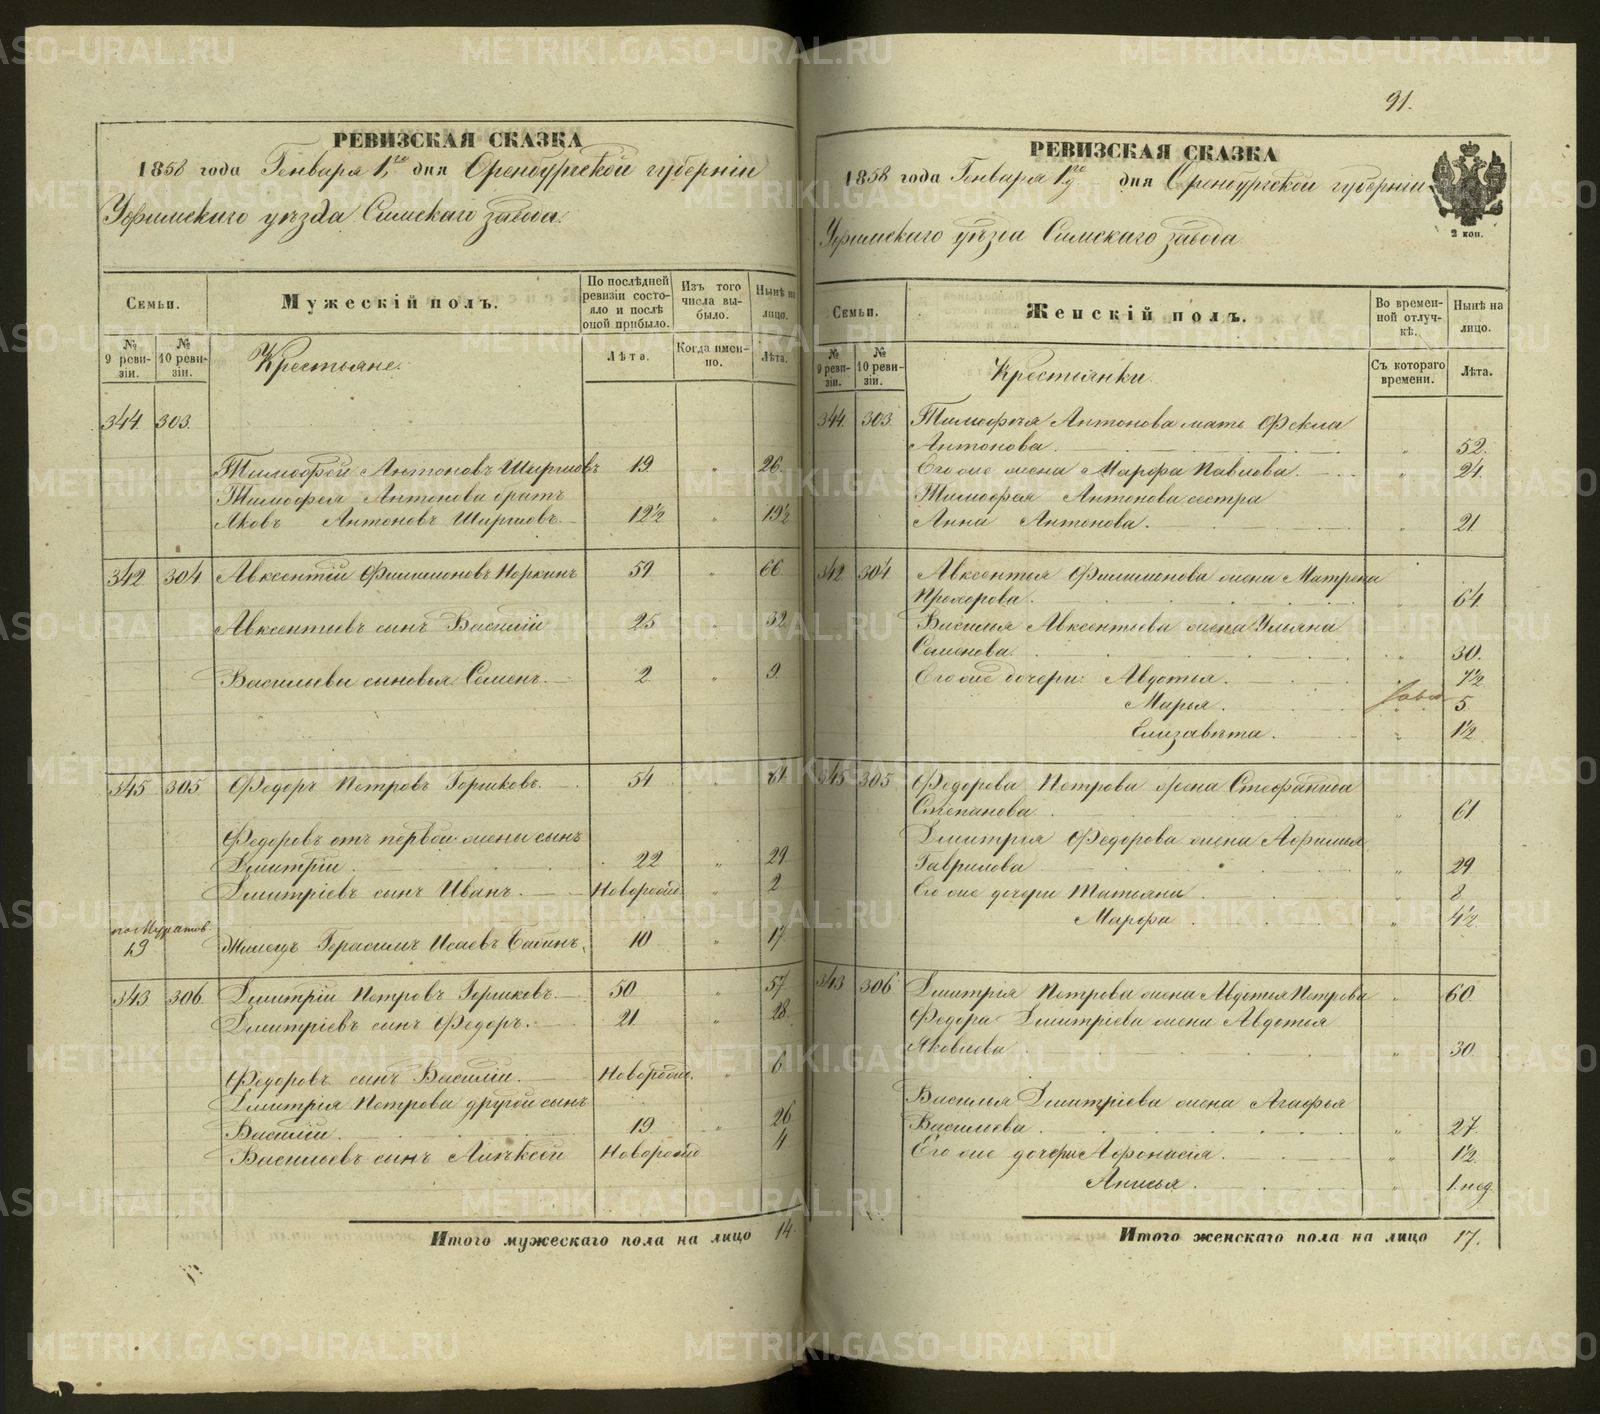 РЕВИЗСКАЯ СКАЗКА
1858 года Генваря 1го дня Оренбургской губерніи
Уфимскаго уѣзда Симскаго завода.
Семьи.
Мужескій полъ.
По послѣдней ревизіи состояло и послѣ оной прибыло.
Изъ того числа выбыло.
Нынѣ на лицо.
№ 9 ревизіи.
№ 10 ревизіи.
Крестьяне.
Лѣта.
Когда именно.
Лѣта.
344 303.
Тимофей Антоновъ Ширшовъ 19 „ 26.
Тимофея Антонова братъ
Яковъ Антоновъ Ширшовъ. 12½ „ 19½
342 304 Авксентій Филимоновъ Норкинъ 59 „ 66
Авксентьевъ сынъ Василій 25 „ 32
Васильевы сыновья Семенъ. 2 „ 9
345 305 Федоръ Петровъ Горшковъ. 54 „ 61.
Федоровъ отъ первой жены сынъ
Дмитрій. 22 „ 29
Дмитріевъ сынъ Иванъ. Новорожд. „ 2
19
Жилецъ Герасимъ Исаевъ Бабинъ. 10 „ 17
343 306 Дмитрій Петровъ Горшковъ. 50 „ 57
Дмитріевъ сынъ Федоръ. 21 „ 28
Федоровъ сынъ Василій. Новорожд. „ 6
Дмитрія Петрова другой сынъ
Василій. 19 „ 26
Васильевъ сынъ Алексѣй Новорожд 4
Итого мужескаго пола на лицо 14.
91.
РЕВИЗСКАЯ СКАЗКА
1858 года Генваря 1го дня Оренбургской губерніи
Уфимскаго уѣзда Симскаго завода
2 коп.
Семьи.
Женскій полъ.
Во временной отлучкѣ.
Нынѣ на лицо.
№ 9 ревизіи.
№ 10 ревизіи.
Крестьянки.
Съ котораго времени.
Лѣта.
344 303. Тимофея Антонова мать Фекла
Антонова. „ 52.
Его же жена Марфа Павлова. „ 24.
Тимофея Антонова сестра
Анна Антонова. „ 21
342 304 Авксентья Филимонова жена Матрена
Прохорова. „ 64
Василья Авксентьева жена Ульяна
Семенова. „ 30.
Его же дочери: Авдотья. 7½
Марья. „ 5.
Елизавета. „ 1½
345 305 Федорова Петрова жена Стефанида
Степанова „ 61
Дмитрія Федорова жена Афимья
Гаврилова „ 29
Его же дочери Татьяна „ 8
Марфа „ 4½
343 306 Дмитрія Петрова жена Авдотья Петрова „ 60
Федора Дмитріева жена Авдотья
Яковлева „ 30
Василья Дмитріева жена Агафья
Васильева „ 27
Его же дочери Афонасія. „ 1½
Анисья. „ 1 нед.
Итого женскаго пола на лицо 17.
METRIKI.GASO-URAL.RU